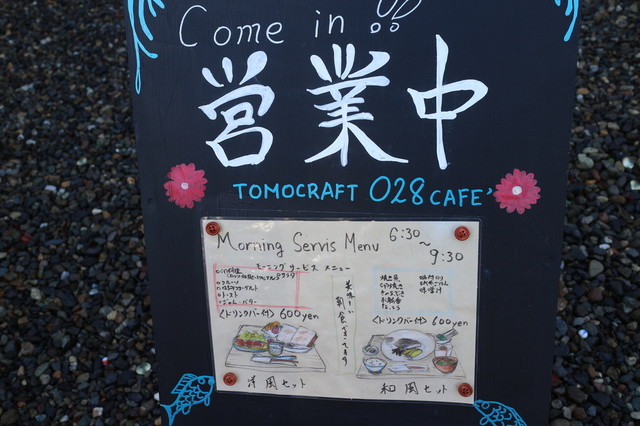 Come in!!
営業中
TOMOCRAFT 028 CAFE'
Morning Servis Menu 6:30
~
9:30
モーニング サービス メニュー
トースト
ジャム・バター
<ドリンクバー付> 600yen
洋風セット
美味しい
朝食
焼き魚
味噌汁
<ドリンクバー付> 600yen
和風セット